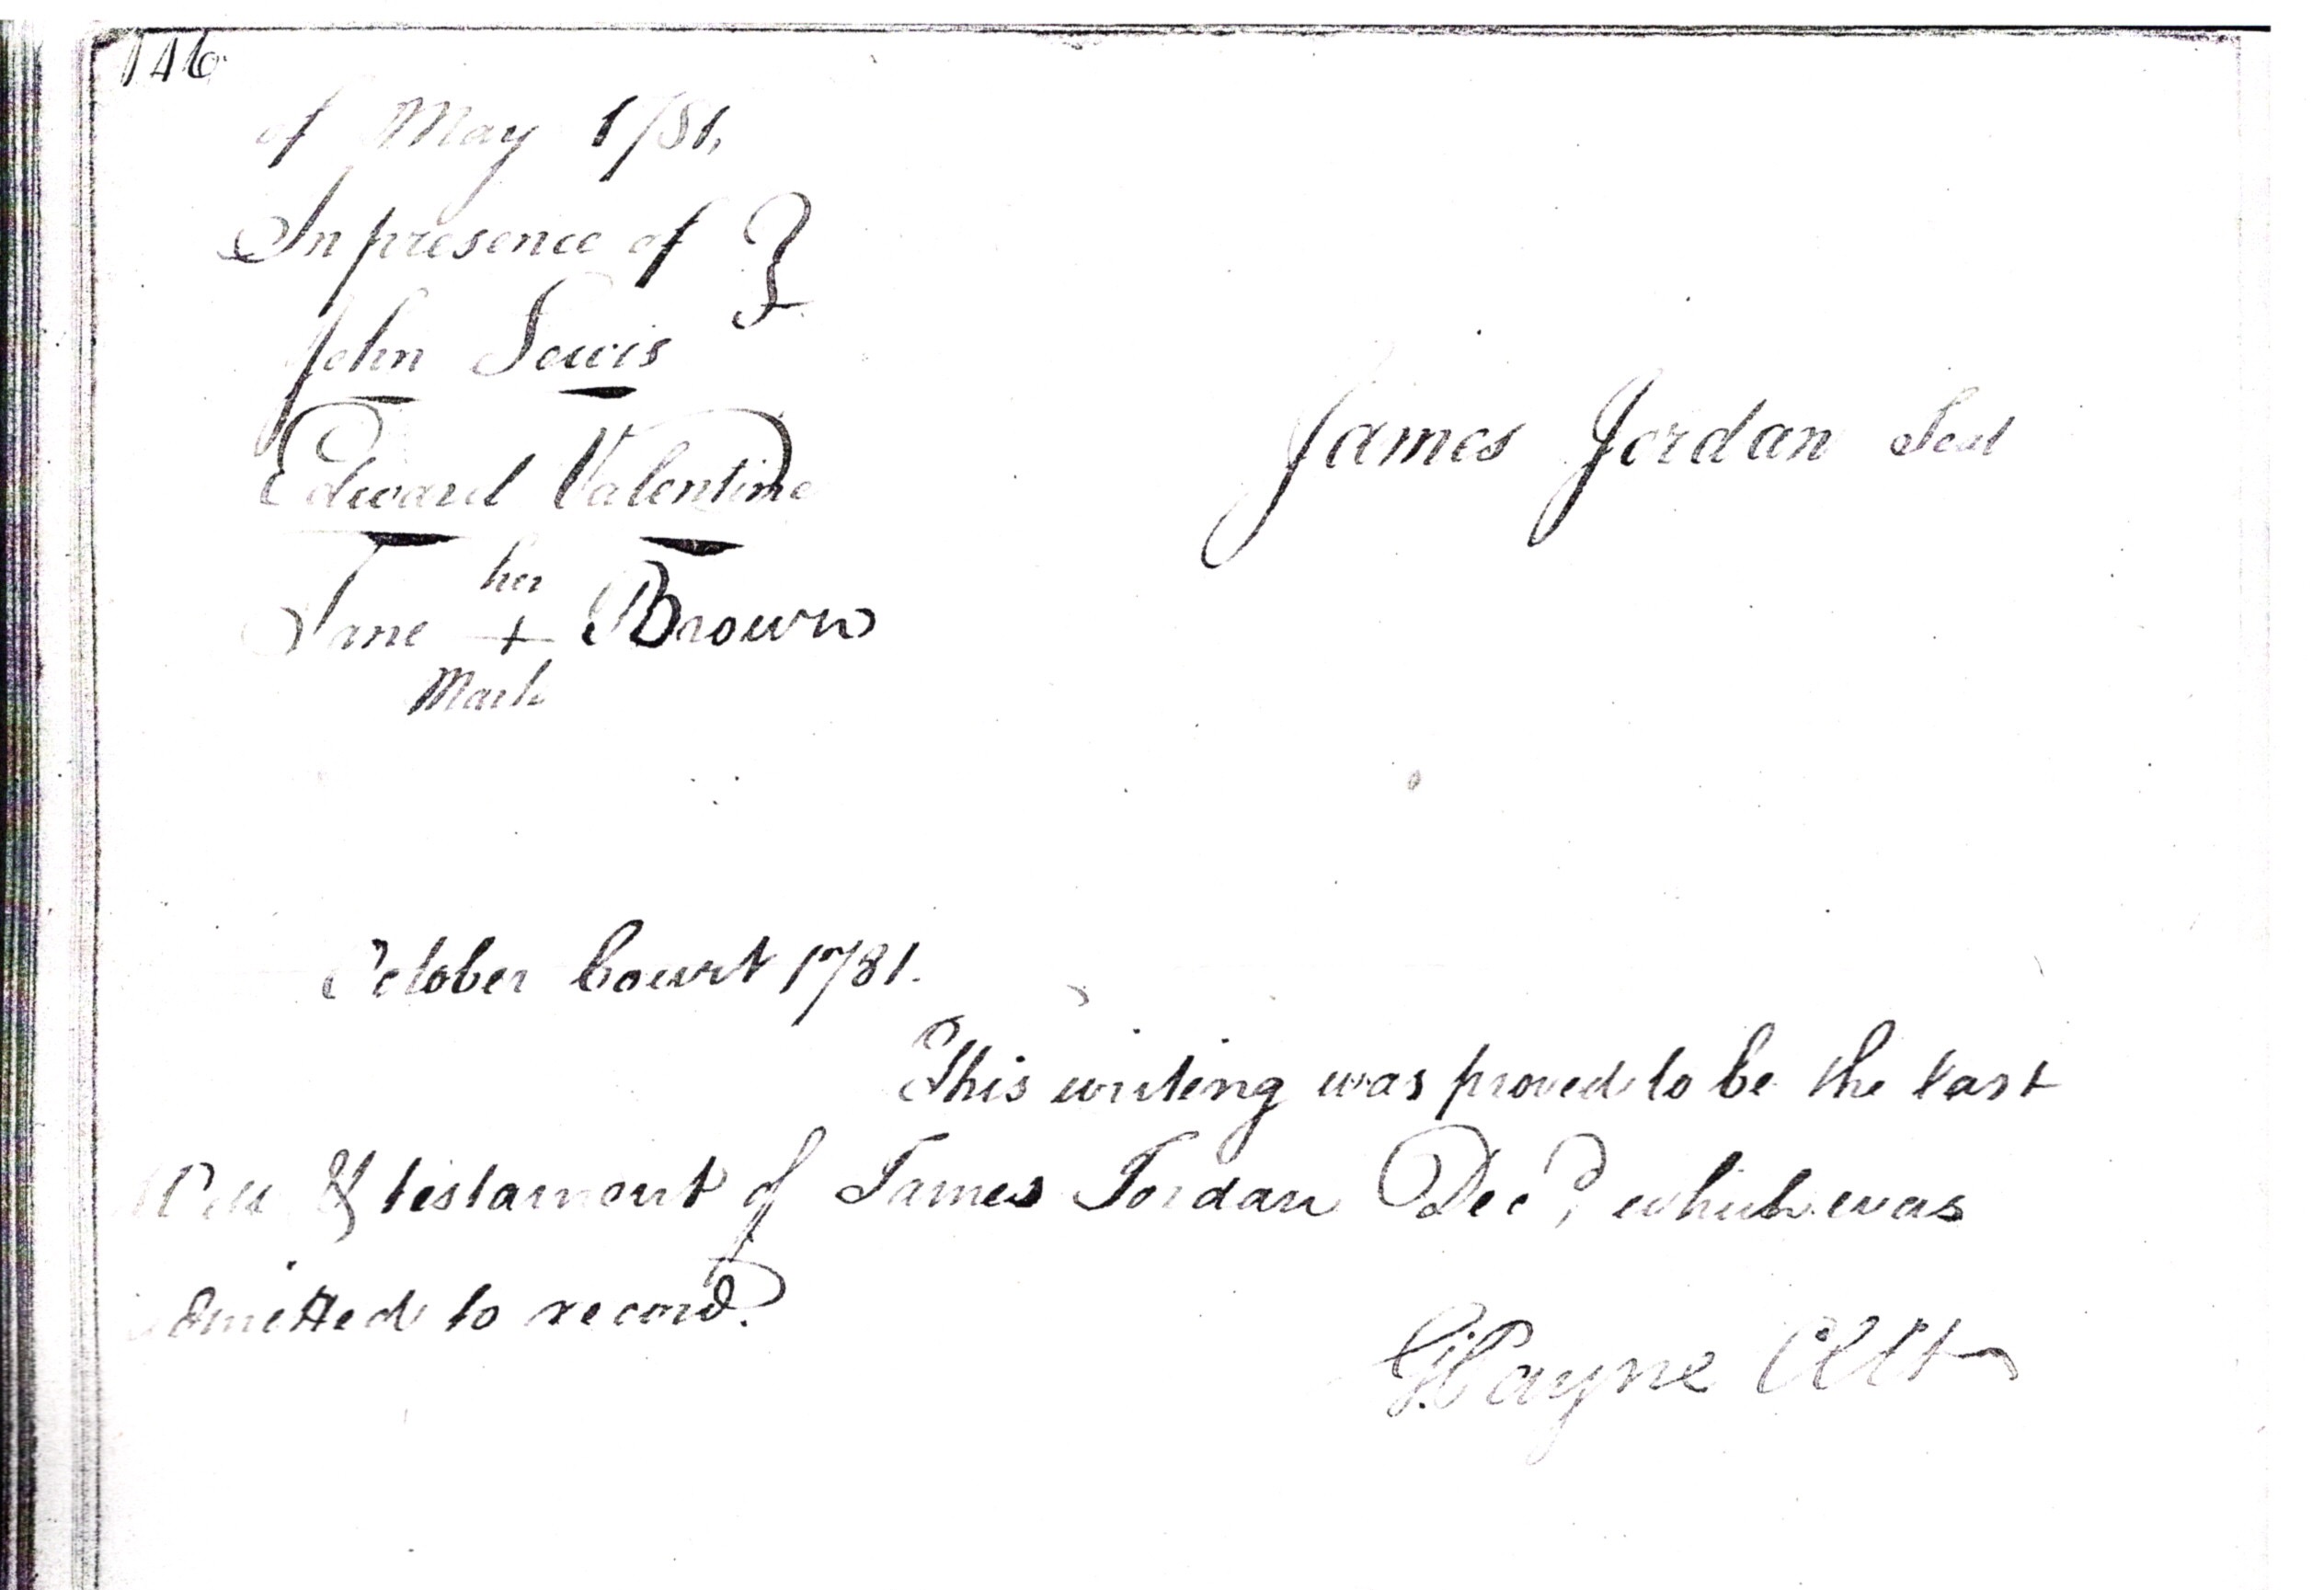 146
of May 1781,
In presence of }
John Lewis
James Jordan Seal
Edward Valentine
her
Jane + Brown
Mark
October Court 1781.
This writing was proved to be the last
Will & testament of James Jordan Decd, which was
admitted to record.
G. Payne Clk